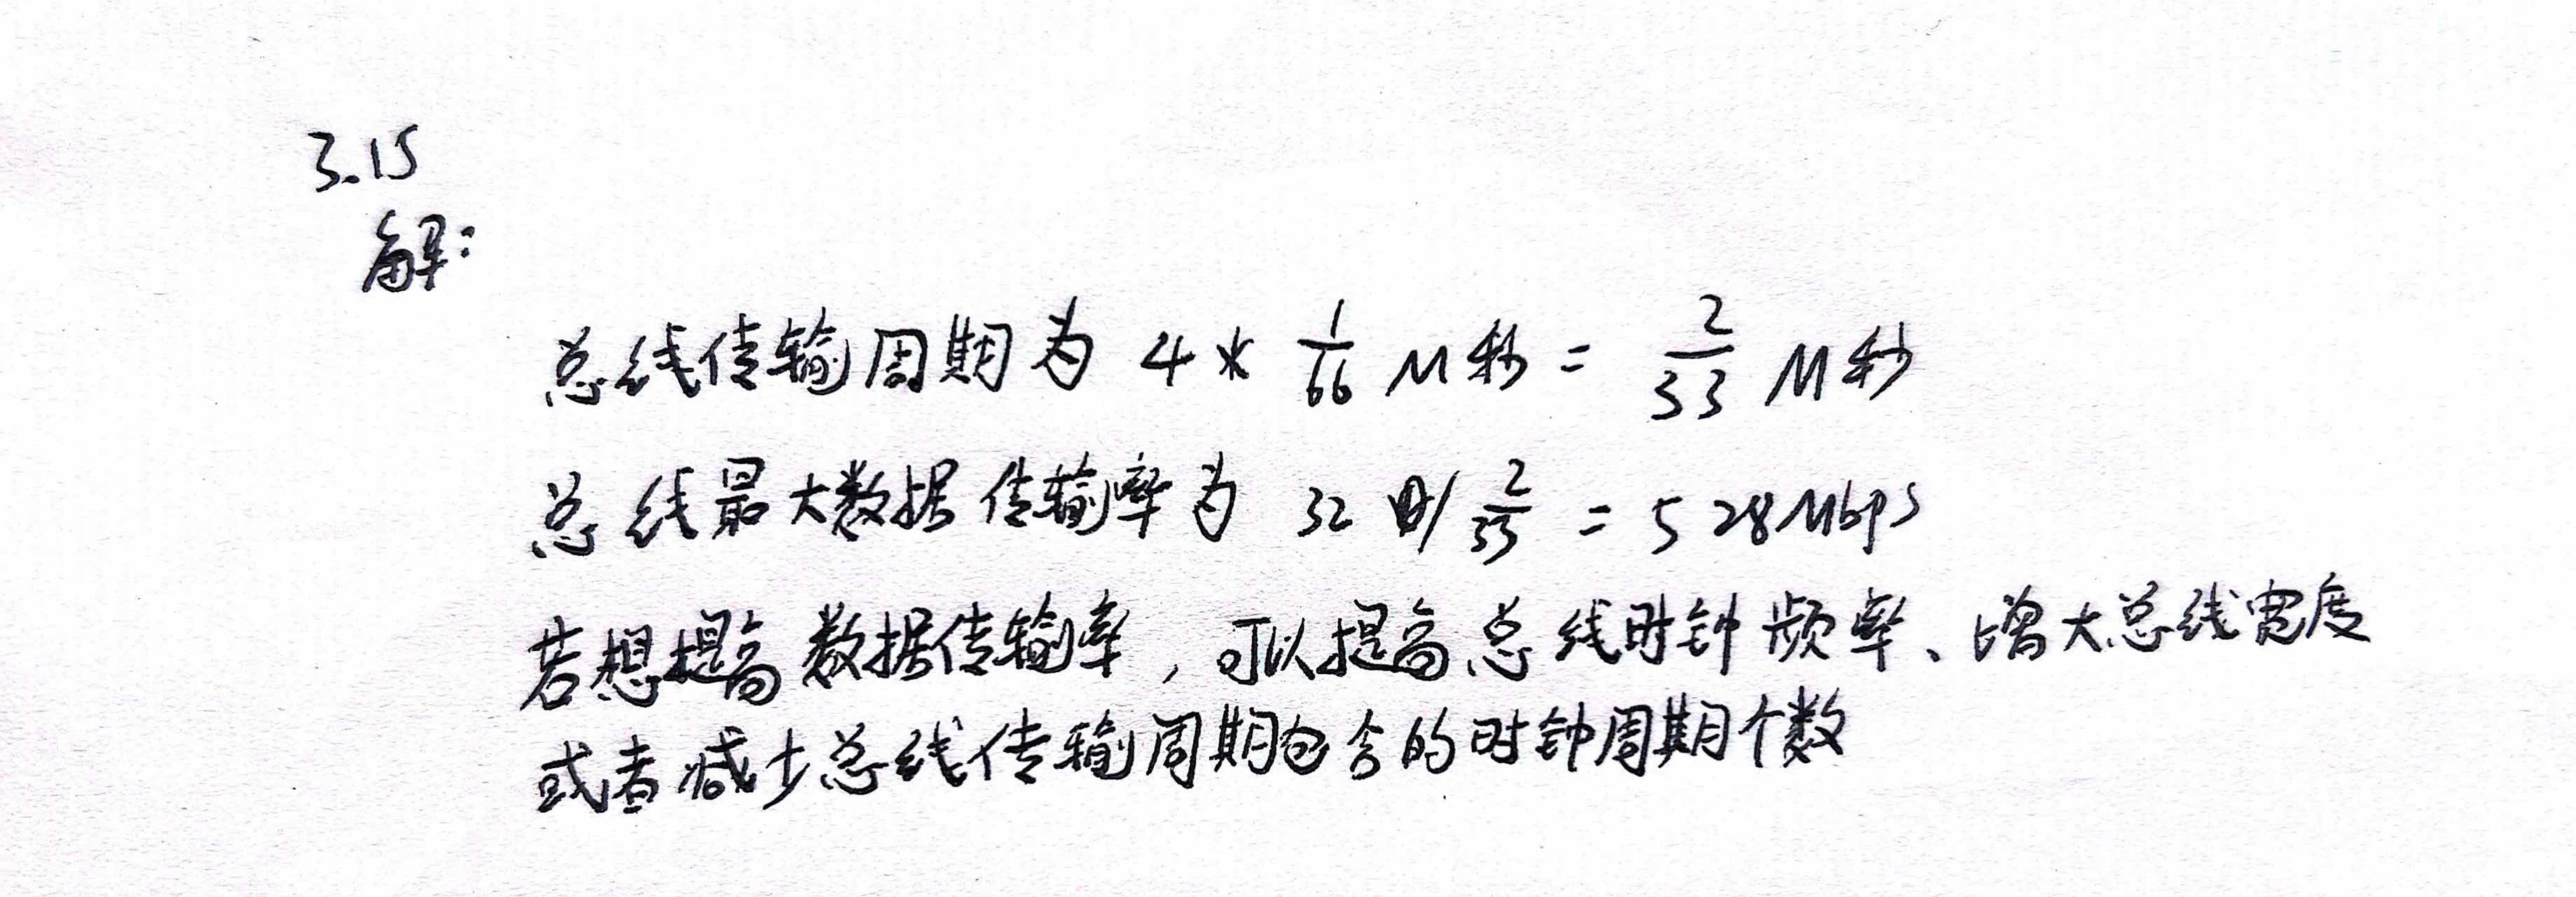 3.15
解:
总线传输周期为 4 * 1/66 M秒 = 2/33 M秒
总线最大数据传输率为 32 / 2/33 = 528Mbps
若想提高数据传输率，可以提高总线时钟频率、增大总线宽度
或者减少总线传输周期包含的时钟周期个数